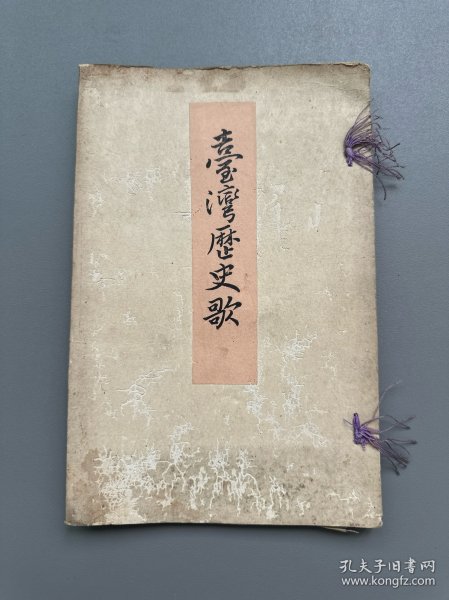 臺灣歷史歌
孔夫子旧书网
www.kongfz.com